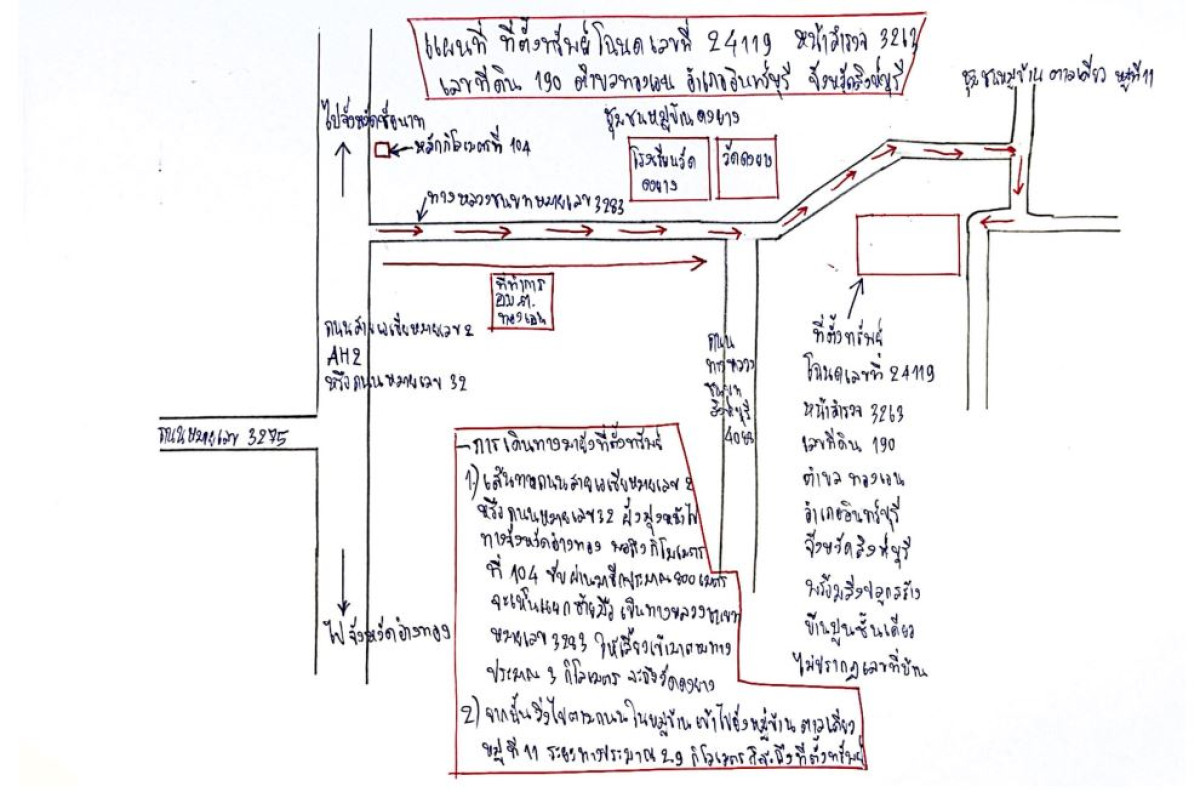 แผนที่ ที่ตั้งทรัพย์ โฉนดเลขที่ 24119 หน้าสำรวจ 3263
เลขที่ดิน 190 ตำบลทองเอน อำเภออินทร์บุรี จังหวัดสิงห์บุรี
ชุมชนหมู่บ้าน ตาลเดี่ยว หมู่ที่ 11
ไปจังหวัดชัยนาท
ชุมชนหมู่บ้านดงยาง
หลักกิโลเมตรที่ 104
โรงเรียนวัด
ดงยาง
วัดดงยาง
ทางหลวงชนบทหมายเลข 3283
ที่ทำการ
อบ.ต.
ทองเอน
ถนนสายเอเชียหมายเลข 2
AH2
หรือถนนหมายเลข 32
ถนนหมายเลข 3275
ถนน
ทางหลวง
ชนบท
สิงห์บุรี
ที่ตั้งทรัพย์
โฉนดเลขที่ 24119
หน้าสำรวจ 3263
เลขที่ดิน 190
ตำบล ทองเอน
อำเภออินทร์บุรี
จังหวัดสิงห์บุรี
พร้อมสิ่งปลูกสร้าง
บ้านปูนชั้นเดียว
ไม่ปรากฏเลขที่บ้าน
ไป จังหวัดอ่างทอง
- การเดินทางมายังที่ตั้งทรัพย์
1) เส้นทางถนนสายเอเชียหมายเลข 2
หรือถนนหมายเลข 32 ฝั่งมุ่งหน้าไป
ทางจังหวัดอ่างทอง พอถึงกิโลเมตร
ที่ 104 ขับผ่านมาอีกประมาณ 800 เมตร
จะเห็นแยกซ้ายมือ เป็นทางหลวงชนบท
หมายเลข 3283 ให้เลี้ยวเข้ามาตามทาง
ประมาณ 3 กิโลเมตร จะถึงวัดดงยาง
2) จากนั้นวิ่งไปตามถนนในหมู่บ้าน เข้าไปยังหมู่บ้าน ตาลเดี่ยว
หมู่ที่ 11 ระยะทางประมาณ 2.9 กิโลเมตร ก็จะถึงที่ตั้งทรัพย์